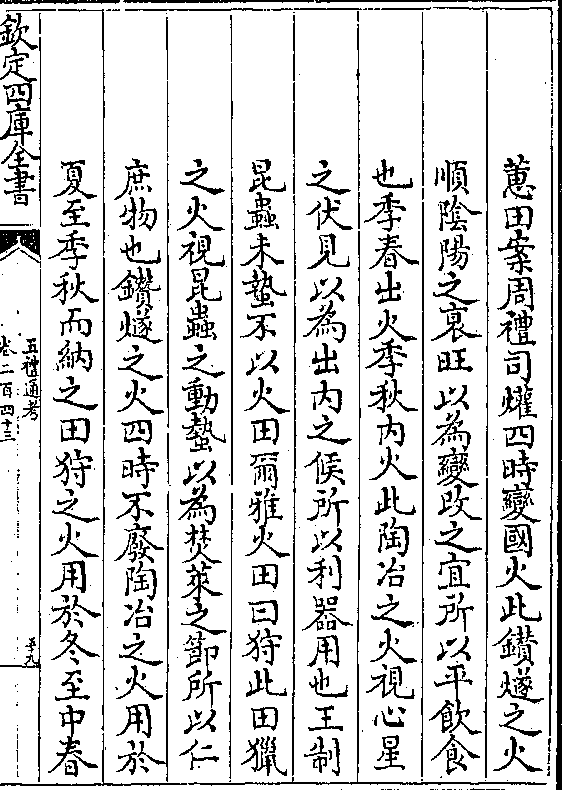 蕙田案周禮司爟四時變國火此鑽燧之火
順陰陽之衰旺以為變改之宜所以平飲食
也季春出火季秋内火此陶冶之火視心星
之伏見以為出内之候所以利器用也王制
昆蟲未蟄不以火田爾雅火田曰狩此田獵
之火視昆蟲之動蟄以為焚萊之節所以仁
庶物也鑽燧之火四時不廢陶冶之火用於
夏至季秋而納之田狩之火用於冬至中春
欽定四庫全書
五禮通考
卷二百四十三
五九